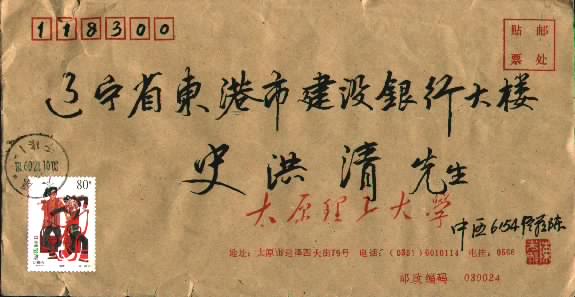 118300
贴邮
票处
辽宁省東港市建设銀行大楼
史洪清先生
80分
太原理工大学
中西6154
地址:太原市迎泽西大街79号 电话:(0351)6010114 电挂:0566
邮政编码 030024